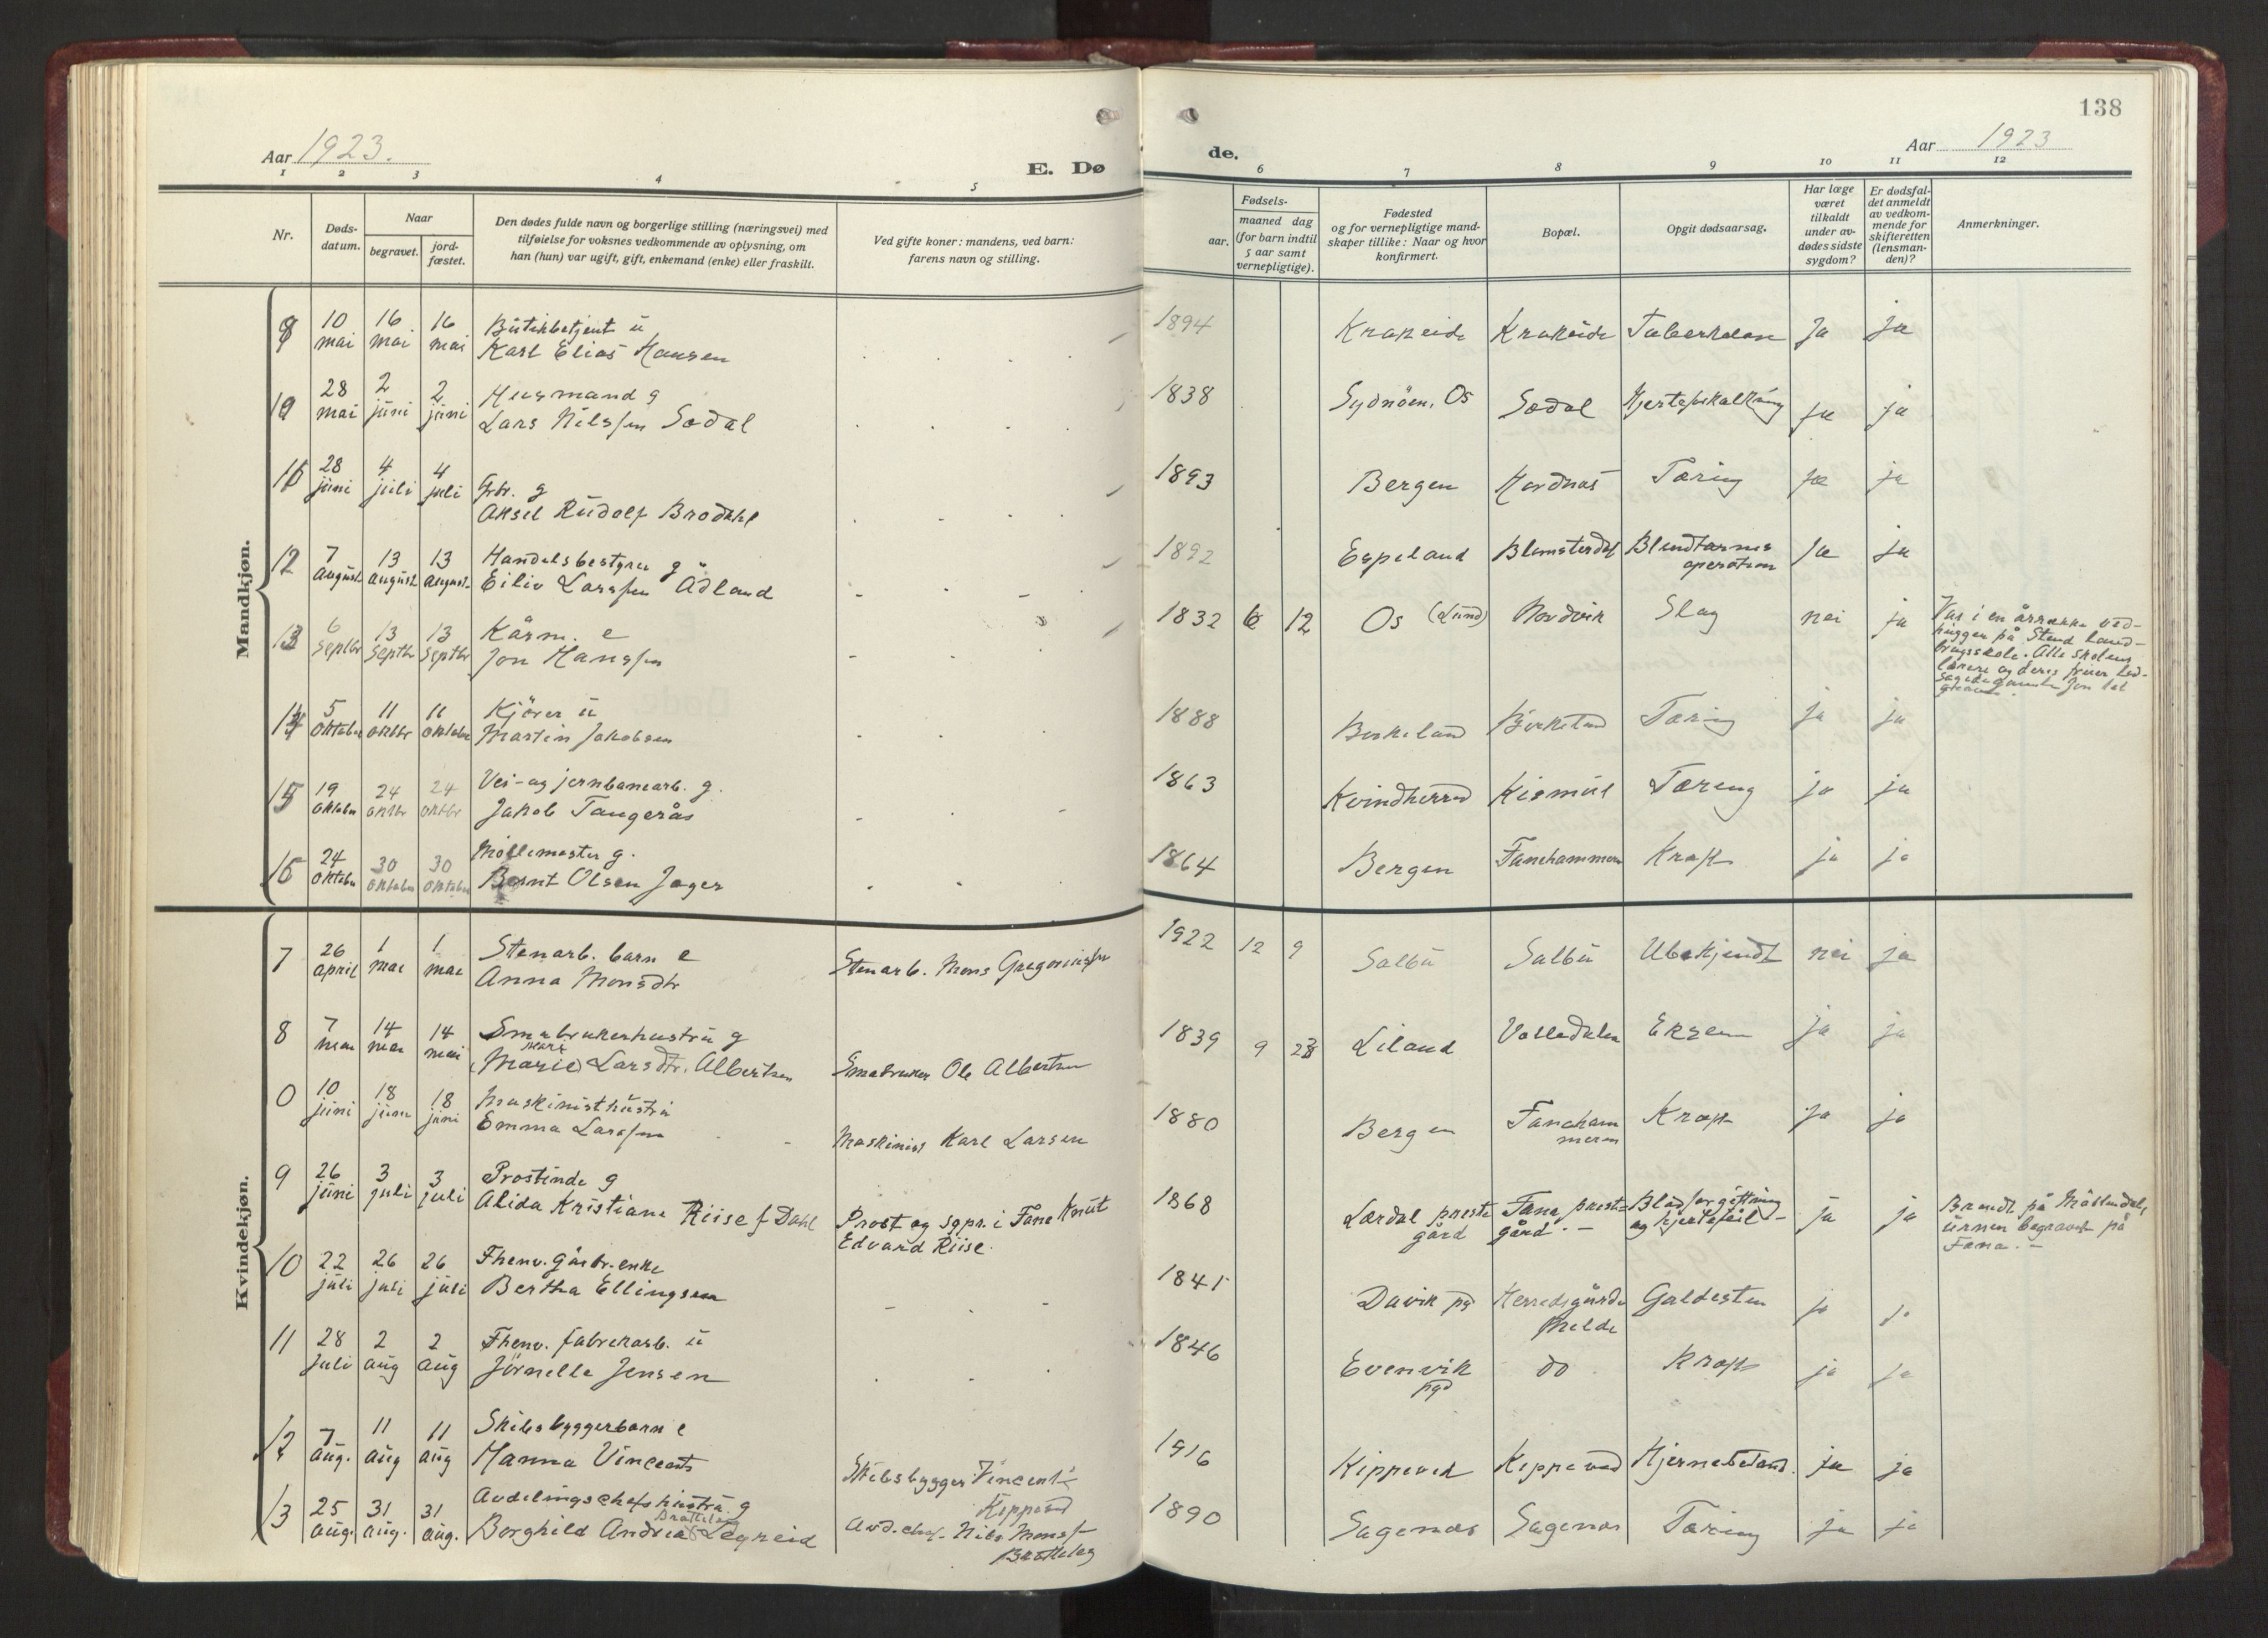 138
Aar 1923.
E. Dø
de.
Aar 1923
1 2 3 4 5 6 7 8 9 10 11 12
Nr.
Døds-
datum.
Naar
begravet.
jord-
fæstet.
Den dødes fulde navn og borgerlige stilling (næringsvei) med
tilføielse for voksnes vedkommende av oplysning, om
han (hun) var ugift, gift, enkemand (enke) eller fraskilt.
Ved gifte koner: mandens, ved barn:
farens navn og stilling.
Fødsels-
aar.
maaned dag
(for barn indtil
5 aar samt
vernepligtige).
Fødested
og for vernepligtige mand-
skaper tillike: Naar og hvor
konfirmert.
Bopæl.
Opgit dødsaarsag.
Har læge
været
tilkaldt
under av-
dødes sidste
sygdom?
Er dødsfal-
det anmeldt
av vedkom-
mende for
skifteretten
(lensman-
den)?
Anmerkninger.
Mandkjøn.
10 16 16 Butikbetjent u 1894 Krokeide Krokeide Tuberkulose Ja ja
mai mai mai Karl Elias Hansen
28 2 2 Husmand g 1838 Sydnöen, Os Sædal Hjerteforkalkning ja ja
mai juni juni Lars Nilssen Sædal
28 4 4 Gbr. g 1893 Bergen Hordnæs Tæring ja ja
juni juli juli Aksel Rudolf Brodahl
12 7 13 13 Handelsbestyrer g 1892 Espeland Blomsterdal Blindtarms ja ja
august august august Eiliv Larssen Ådland operation
13 6 13 13 Kårm. e 1832 6 12 Os (Lund) Nordvik Slag nei ja Var i en årrække ved-
septbr septbr septbr Jon Hanssen hugger på Stend land-
bruksskole. Alle skolens
lærere og deres fruer led-
saget gamle Jon til
graven.
14 5 11 11 Kjörer u 1888 Birkeland Birkeland Tæring ja ja
oktober oktbr oktober Martin Jakobsen
15 19 24 24 Vei- og jernbanearb. g. 1863 Kvindherred Kismul Tæring ja ja
oktober oktbr oktbr Jakob Tangerås
16 24 30 30 Möllemester g. 1864 Bergen Fanehammeren Kræft ja ja
oktober oktober oktober Bernt Olsen Jæger
Kvindekjøn.
7 26 1 1 Stenarb. barn e Stenarb. Mons Gregoriussen 1922 12 9 Salbu Salbu Ubekjendt nei ja
april mai mai Anna Monsdtr
8 7 14 14 Småbrukerhustru g 1839 9 23 Liland Valledalen Eksem ja ja
mai mai mai (Marie) Larsdtr. Albertsen Småbruker Ole Albertsen
0 10 18 18 Maskinisthustru 1880 Bergen Faneham Kræft Ja ja
juni juni juni Emma Larssen Maskinist Karl Larsen meren
9 26 3 3 Prostinde g 1868 Lærdal preste Fana preste Blodforgiftning ja ja Brændt på Möllendal,
juni juli juli Alida Kristiane Riise f Dahl Prost og sgpr. i Fane Knut gård gård.- og hjertefeil - urnen begravet på
Edvard Riise. Fana.-
10 22 26 26 Fhenv. gårbr. enke 1841 Davik pg Herredsgården Galdesten ja ja
juli juli juli Bertha Ellingsen Milde
11 28 2 2 Fhenv. fabrikarb. u 1846 Evenvik do Kræft ja ja
juli aug aug Jörnelle Jensen pgd
12 7 11 11 Skibsbyggerbarn e 1916 Kippeved Kippeved Hjernebetænd. ja ja
aug. aug aug Hanna Vincents Skibsbygger Vincent
Kippeved
13 25 31 31 Avdelingschefs hustru g 1890 Sagenæs Sagenæs Tæring ja ja
Brattelag
aug. aug. aug. Borghild Andrea Legreid Avd.chef Nils Monss
Brattelag